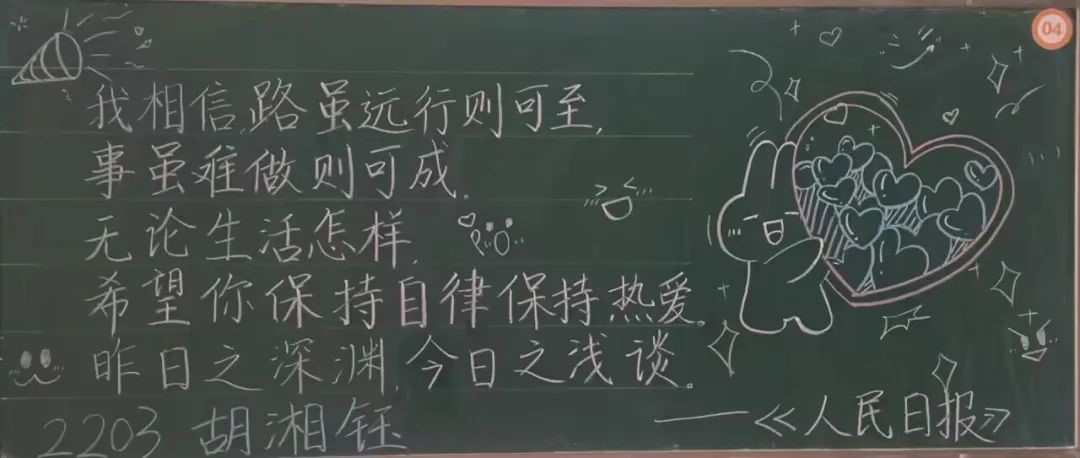 04
我相信,路虽远行则可至,
事虽难做则可成。
无论生活怎样,
希望你保持自律保持热爱。
昨日之深渊,今日之浅谈。
——《人民日报》
2203 胡湘钰